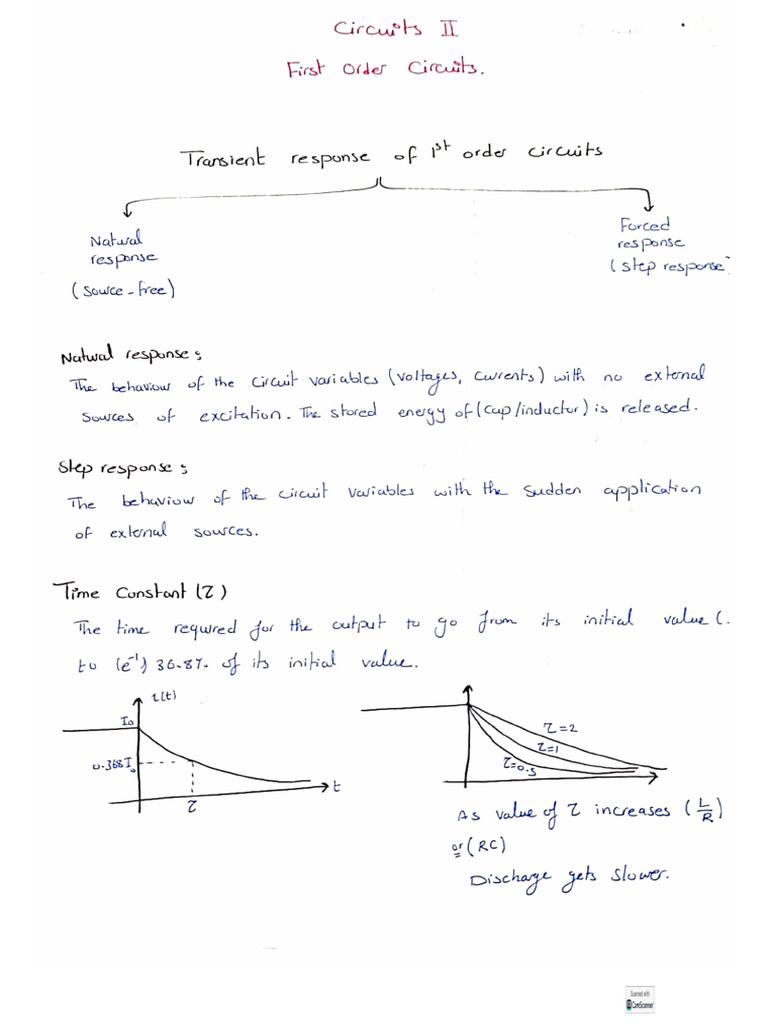 Circuits II
First Order Circuits.
Transient response of 1st order circuits
Natural
response
(source-free)
Forced
response
(step response
Natural response:
The behaviour of the circuit variables (voltages, currents) with no external
sources of excitation. The stored energy of (cap/inductor) is released.
Step response:
The behaviour of the circuit variables with the sudden application
of external sources.
Time Constant (τ)
The time required for the output to go from its initial value (.
to (e⁻¹) 36.8% of its initial value.
i(t)
I₀
0.368I₀
τ
t
τ=2
τ=1
τ=0.5
As value of τ increases (L/R)
or (RC)
Discharge gets slower.
Scanned with
CamScanner